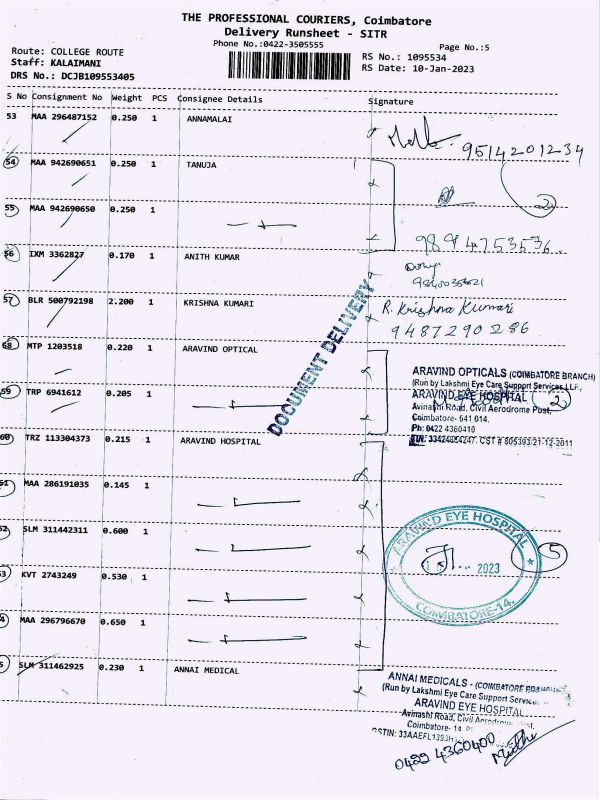 THE PROFESSIONAL COURIERS, Coimbatore
Delivery Runsheet - SITR
Phone No.:0422-3505555
Page No.:5
Route: COLLEGE ROUTE
Staff: KALAIMANI
DRS No.: DCJB109553405
RS No.: 1095534
RS Date: 10-Jan-2023
S No Consignment No Weight PCS Consignee Details Signature
53 MAA 296487152 0.250 1 ANNAMALAI
9514201234
54 MAA 942690651 0.250 1 TANUJA
2
55 MAA 942690650 0.250 1
9894753536
56 IXM 3362827 0.170 1 ANITH KUMAR
57 BLR 500792198 2.200 1 KRISHNA KUMARI
R. Krishna Kumari
9487290286
DOCUMENT DELIVERY
58 MTP 1203518 0.220 1 ARAVIND OPTICAL
ARAVIND OPTICALS (COIMBATORE BRANCH)
(Run by Lakshmi Eye Care Support Services LLP.,
59 TRP 6941612 0.205 1
ARAVIND EYE HOSPITAL
2
Avinashi Road, Civil Aerodrome Post,
Coimbatore- 641 014.
Ph: 0422 4360410
60 TRZ 113304373 0.215 1 ARAVIND HOSPITAL
61 MAA 286191035 0.145 1
SLM 311442311 0.600 1
ARAVIND EYE HOSPITAL
2023
5
COIMBATORE-14.
KVT 2743249 0.530 1
MAA 296796670 0.650 1
SLM 311462925 0.230 1 ANNAI MEDICAL
ANNAI MEDICALS - (COIMBATORE
(Run by Lakshmi Eye Care Support
ARAVIND EYE HOSPITAL
Avinashi Road, Civil
Coimbatore- 14
0422 4360400